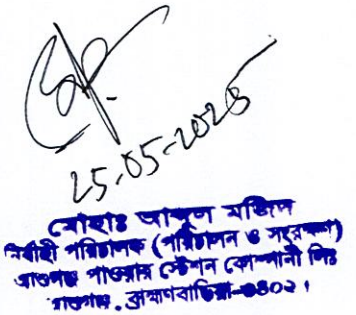 25-05-2025
মোহাঃ আব্দুল মজিদ
নির্বাহী পরিচালক (পরিচালন ও সংরক্ষণ)
আশুগঞ্জ পাওয়ার স্টেশন কোম্পানী লিঃ
আশুগঞ্জ, ব্রাহ্মণবাড়িয়া-৩৪০২।